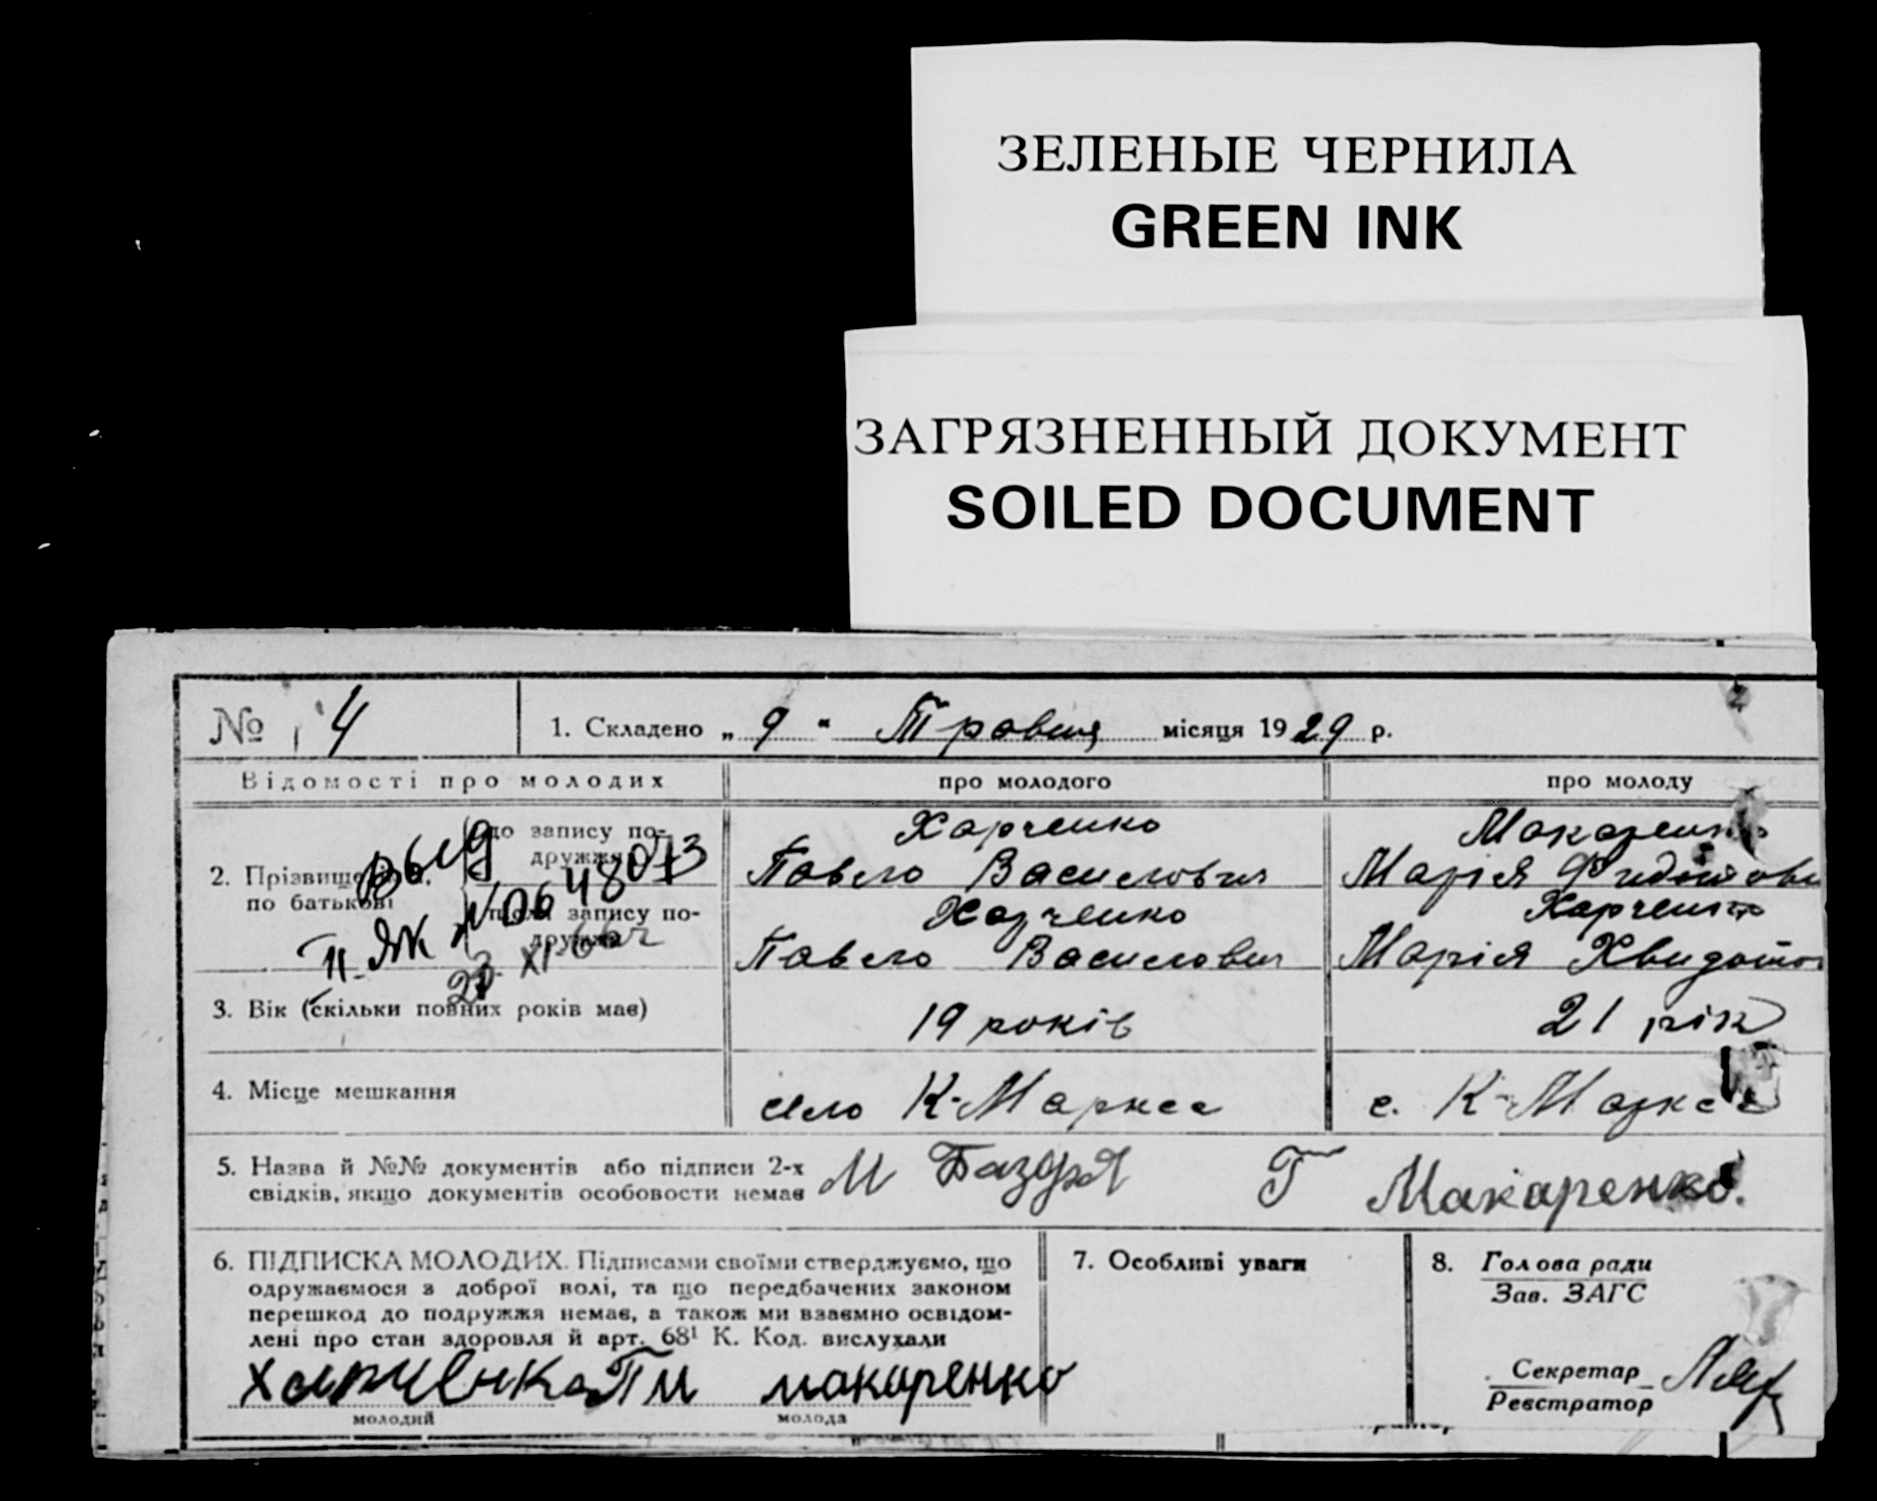 ЗЕЛЕНЫЕ ЧЕРНИЛА
GREEN INK
ЗАГРЯЗНЕННЫЙ ДОКУМЕНТ
SOILED DOCUMENT
№ 4
1. Складено „ 9 " Травня місяця 1929 р.
Відомості про молодих
про молодого
про молоду
2. Прізвище
по батькові
до запису по-
дружжя
запису по-
дружжя
№ 0648073
Харченко
Павло Василович
Харченко
Павло Василович
Макаренко
Марія
Харченко
Марія
3. Вік (скільки повних років має)
19 років
21 рік
4. Місце мешкання
село К-Маркса
с. К-Маркса
5. Назва й №№ документів або підписи 2-х
свідків, якщо документів особовости немає
М
Г Макаренко.
6. ПІДПИСКА МОЛОДИХ. Підписами своїми стверджуємо, що
одружаємося з доброї волі, та що передбачених законом
перешкод до подружжя немає, а також ми взаємно освідом-
лені про стан здоровля й арт. 68¹ К. Код. вислухали
макаренко
молодий
молода
7. Особливі уваги
8. Голова ради
Зав. ЗАГС
Секретар
Реєстратор